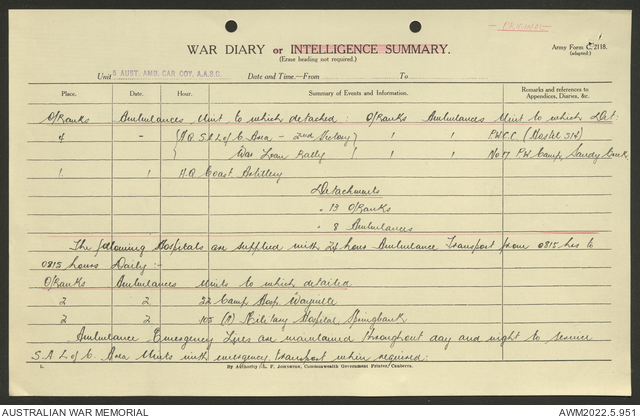 ORIGINAL
WAR DIARY or INTELLIGENCE SUMMARY.
(Erase heading not required.)
Army Form C. 2118.
(adapted.)
Unit 5 AUST. AMB. CAR COY. A.A.S.C. Date and Time.—From To
Place. Date. Hour. Summary of Events and Information. Remarks and references to Appendices, Diaries, &c.
O/Ranks Ambulances Unit to which detached: O/Ranks Ambulances Unit to which Det:
4 - (HQ S.A. L of C Area - 2nd Victory 1 1 P.W.C.C (Hostel
War Loan Rally 1 1 No 17 P.W. Camp, Sandy Creek
1. 1 H.Q. Coast Artillery
Detachments
13 O/Ranks
8 Ambulances
The following Hospitals are supplied with 24 hours Ambulance Transport from 0815 hrs to
0815 hours Daily:-
O/Ranks Ambulances Units to which detailed
2 2 22 Camp Hosp. Wayville
2 2 105 (A) Military Hospital Springbank
Ambulance Emergency Lines are maintained throughout day and night to service
S.A. L of C. Area Units with emergency transport when required:
L.
By Authority: L. F. Johnston, Commonwealth Government Printer, Canberra.
AUSTRALIAN WAR MEMORIAL
AWM2022.5.951